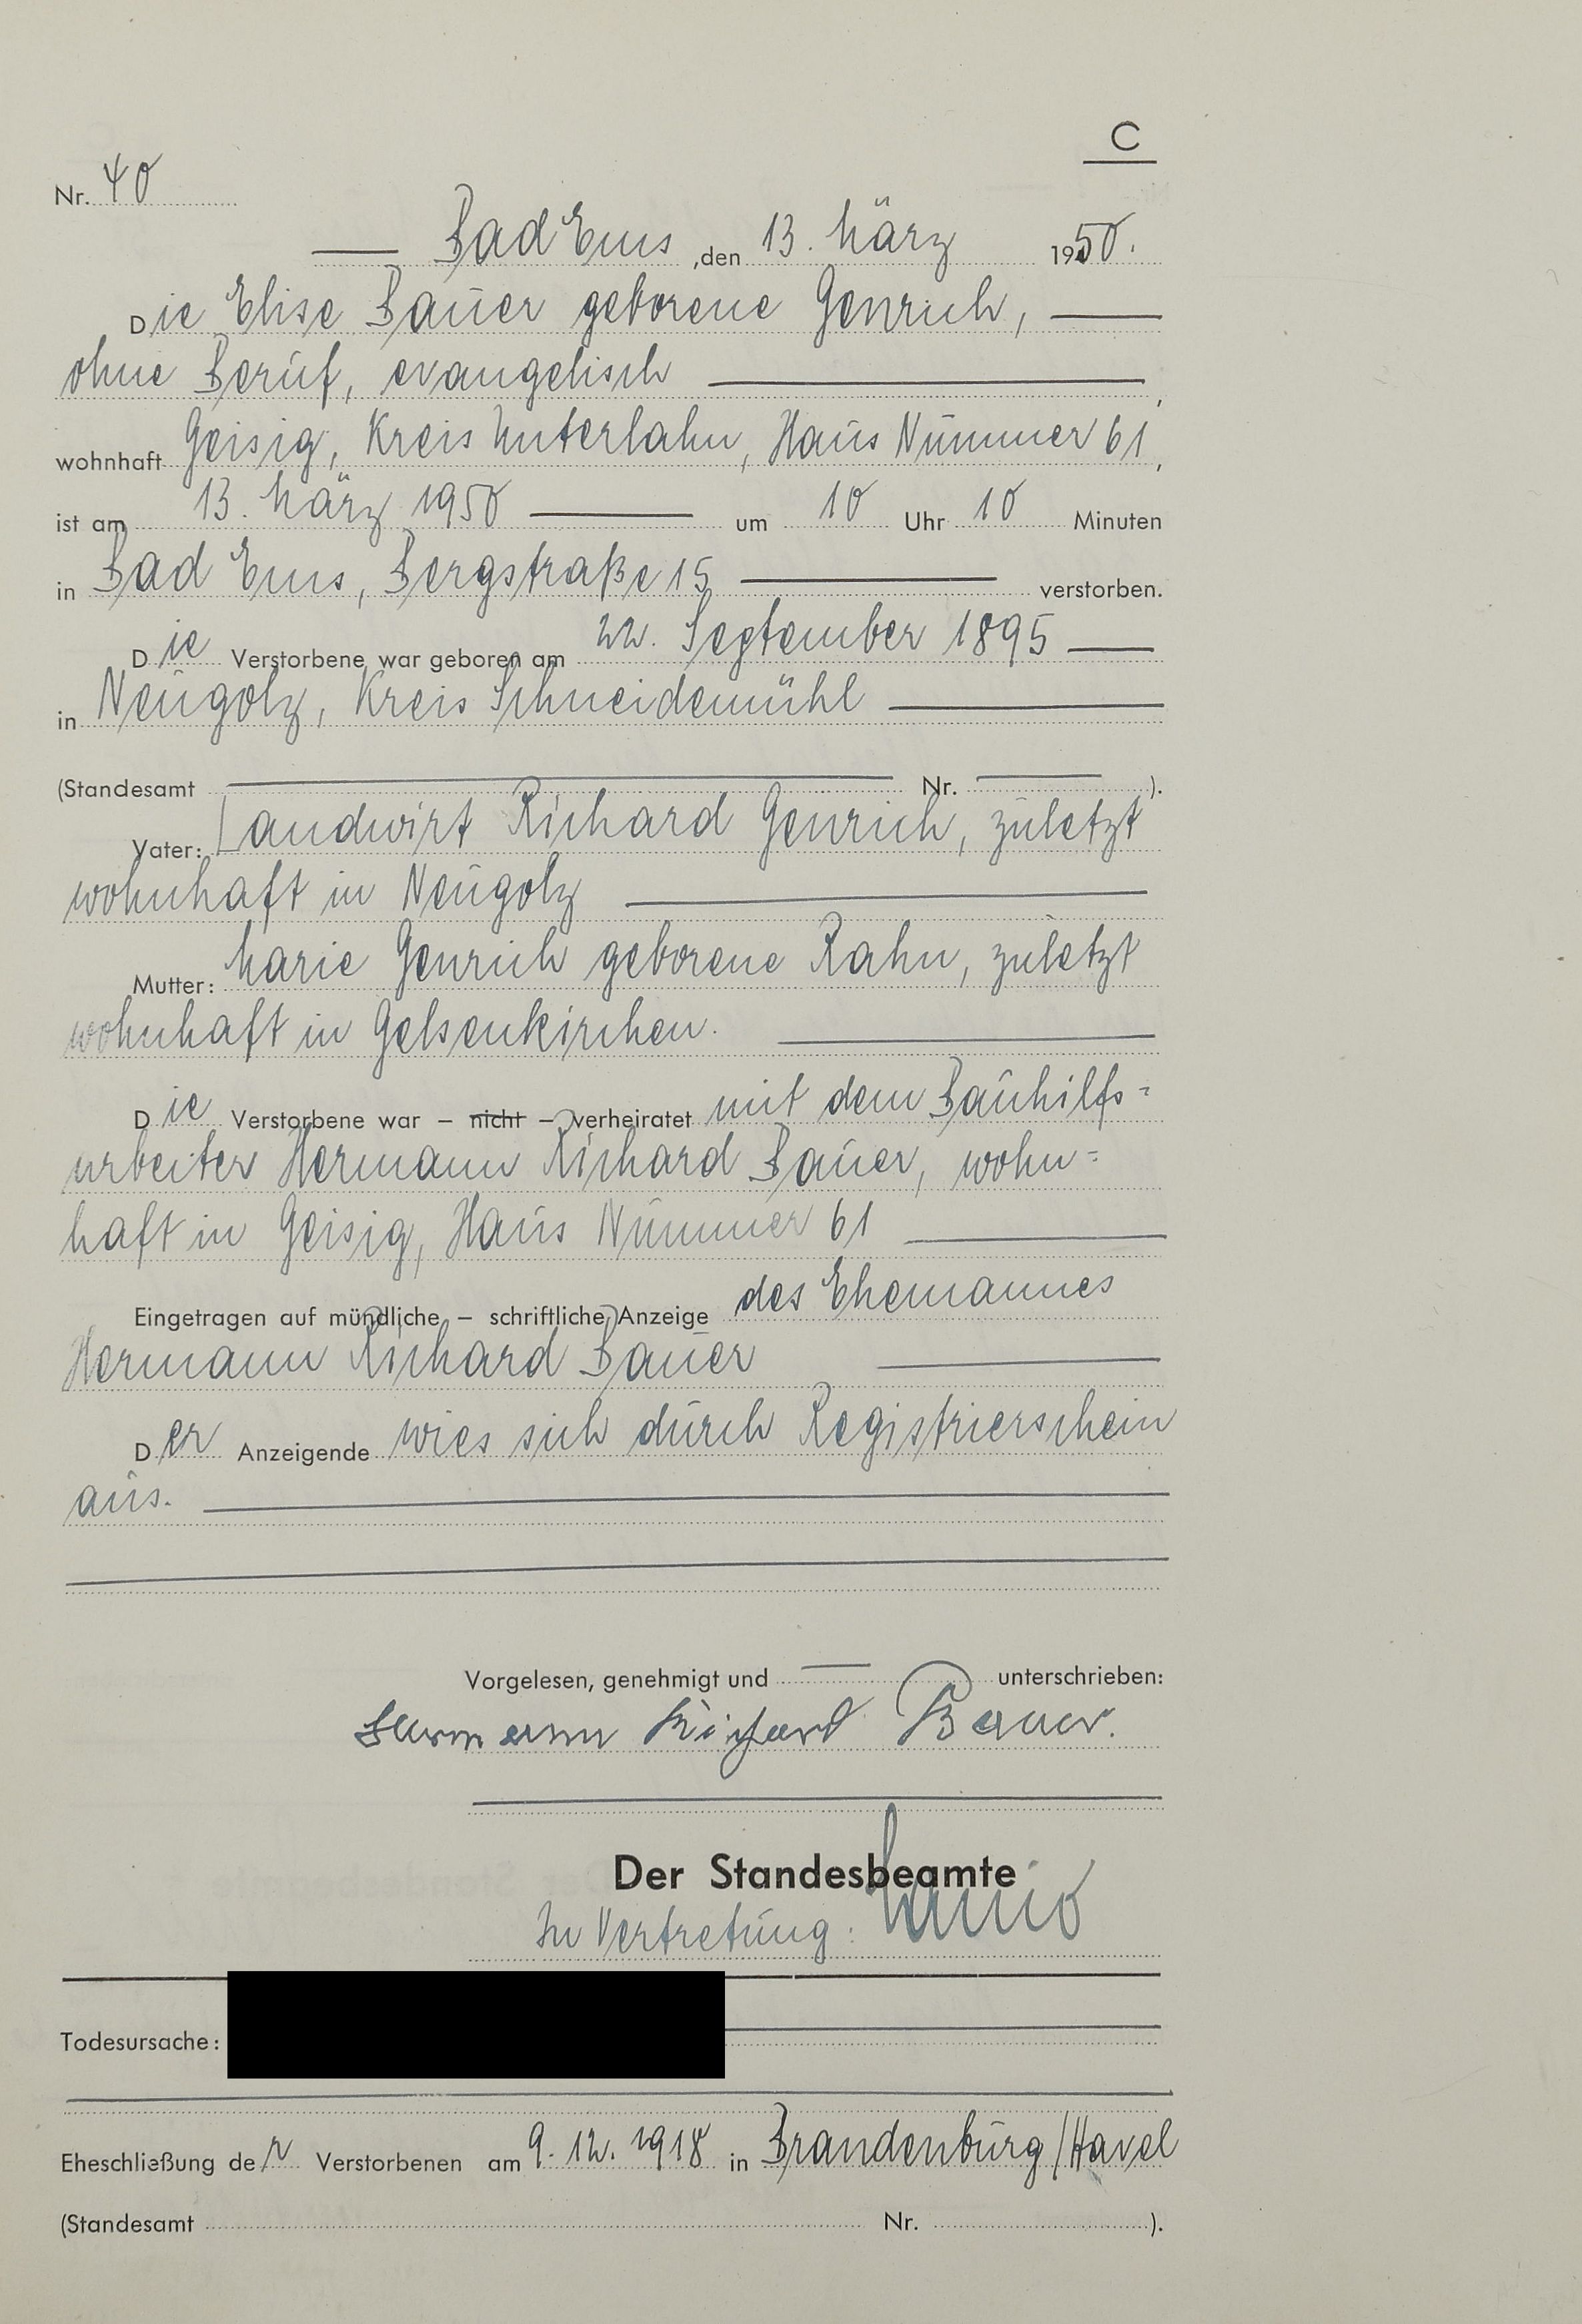 C
Nr. 40
Bad Ems, den 13. März 1950.
Die Elise Bauer geborene Genrich,
ohne Beruf, evangelisch,
wohnhaft Geisig, Kreis Unterlahn, Haus Nummer 61,
ist am 13. März 1950 um 10 Uhr 10 Minuten
in Bad Ems, Bergstraße 15 verstorben.
Die Verstorbene war geboren am 22. September 1895
in Neugolz, Kreis Schneidemühl
(Standesamt Nr. ).
Vater: Landwirt Richard Genrich, zuletzt
wohnhaft in Neugolz
Mutter: Marie Genrich geborene Rahn, zuletzt
wohnhaft in Gelsenkirchen.
Die Verstorbene war – nicht – verheiratet mit dem Bauhilfs=
arbeiter Hermann Richard Bauer, wohn=
haft in Geisig, Haus Nummer 61
Eingetragen auf mündliche – schriftliche Anzeige des Ehemannes
Hermann Richard Bauer
Der Anzeigende wies sich durch Registrierschein
aus.
Vorgelesen, genehmigt und unterschrieben:
Hermann Richard Bauer.
Der Standesbeamte
In Vertretung:
Todesursache:
Eheschließung der Verstorbenen am 9. 12. 1918 in Brandenburg/Havel
(Standesamt Nr. ).